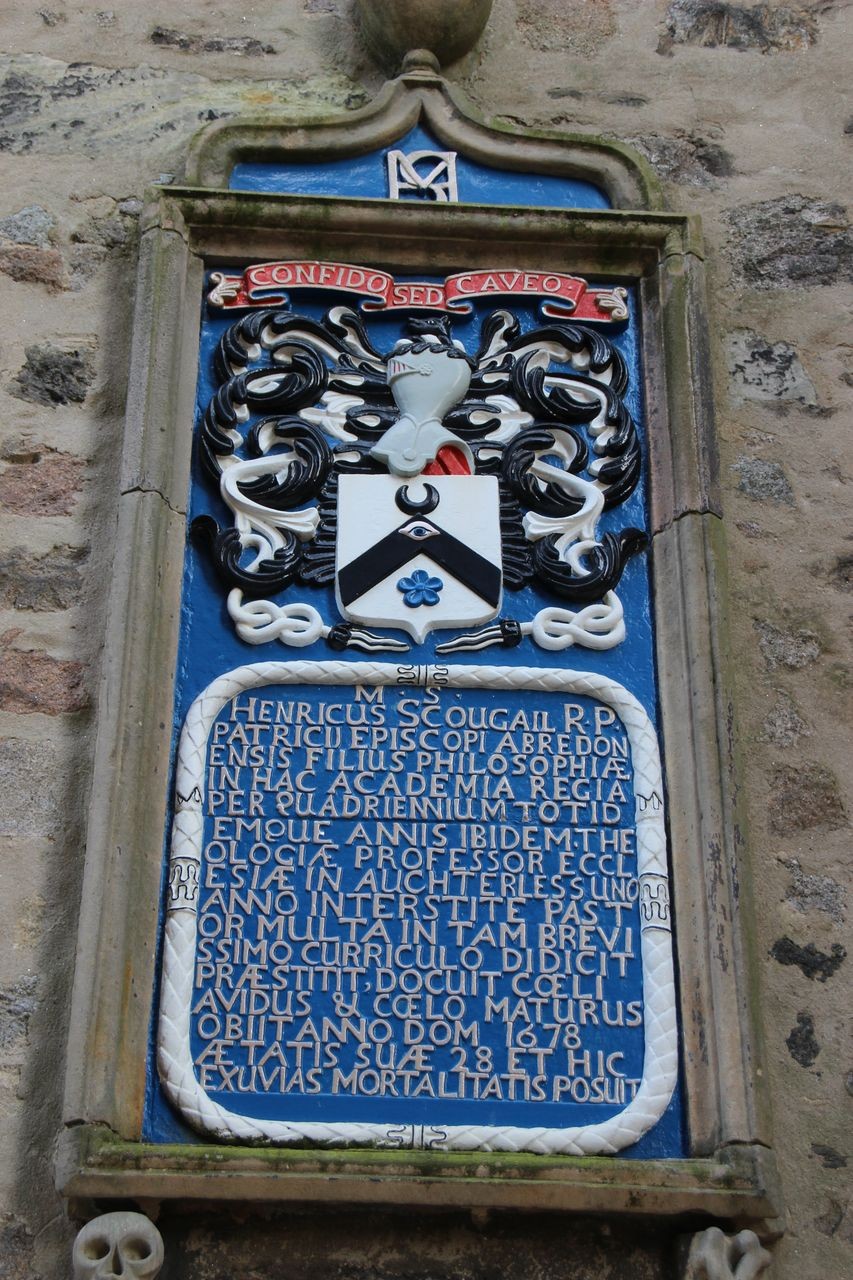 CONFIDO SED CAVEO
M·S·
HENRICUS SCOUGAIL R.P.
PATRICIJ EPISCOPI ABREDON
ENSIS FILIUS PHILOSOPHIÆ
IN HAC ACADEMIA REGIA
PER QUADRIENNIUM TOTID
EMQUE ANNIS IBIDEM·THE
OLOGIÆ PROFESSOR ECCL
ESIÆ IN AUCHTERLESS UNO
ANNO INTERSTITE PAST
OR MULTA IN TAM BREVI
SSIMO CURRICULO DIDICIT
PRÆSTITIT, DOCUIT CŒLI
AVIDUS & CŒLO MATURUS
OBIIT ANNO DOM 1678
ÆTATIS SUÆ 28 ET HIC
EXUVIAS MORTALITATIS POSUIT